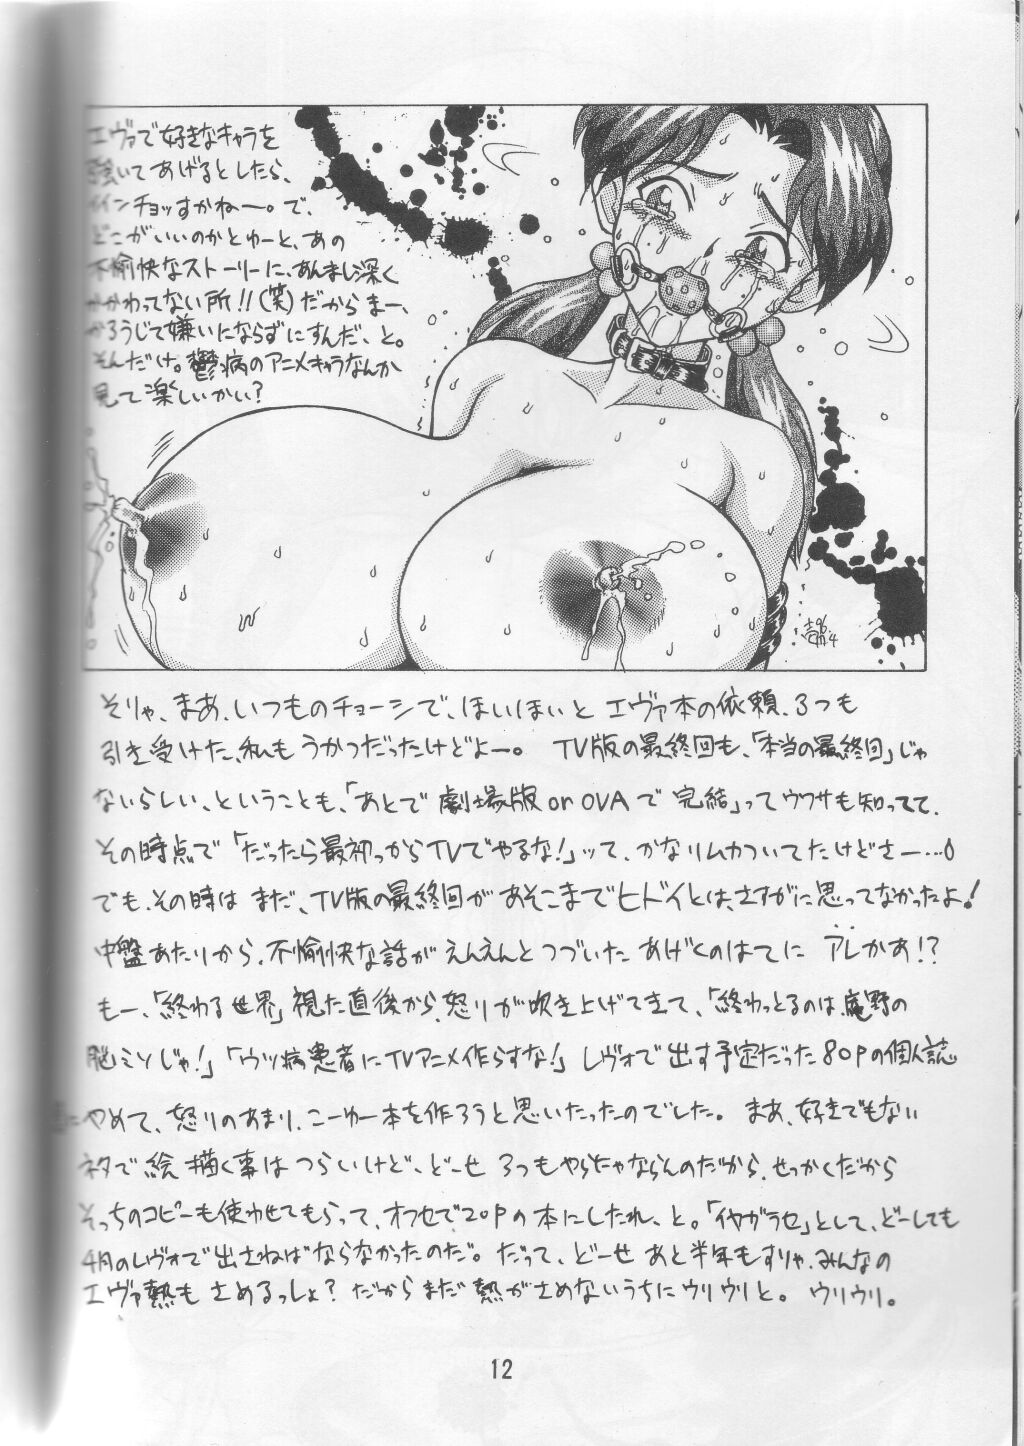 エヴァで好きなキャラを
強いてあげるとしたら、
インチョッすかねー。で、
どこがいいのかとゆーと、あの
不愉快なストーリーに、あんまし深く
かかわってない所!!(笑)だからまー、
かろうじて嫌いにならずにすんだ、と。
そんだけ。鬱病のアニメキャラなんか
見て楽しいかい?
そりゃ、まあ、いつものチョーシで、ほいほいとエヴァ本の依頼、3つも
引き受けた、私もうかつだったけどよー。TV版の最終回も、「本当の最終回」じゃ
ないらしい、ということも、「あとで劇場版or OVAで完結」ってウワサも知ってて、
その時点で「だったら最初っからTVでやるな!」ッて、かなりムカついてたけどさー…。
でも、その時はまだ、TV版の最終回があそこまでヒドイとは、さすがに思ってなかったよ!
中盤あたりから、不愉快な話がえんえんとつづいたあげくのはてにアレかあ!?
もー、「終わる世界」視た直後から、怒りが吹き上げてきて、「終わっとるのは、庵野の
脳ミソじゃ!」「ウツ病患者にTVアニメ作らすな!」レヴォで出す予定だった80Pの個人誌
やめて、怒りのあまり、こーゆー本を作ろうと思いたったのでした。まあ、好きでもない
ネタで絵描く事はつらいけど、どーせ3つもやらにゃならんのだから、せっかくだから
そっちのコピーも使わせてもらって、オフセで20Pの本にしたれ、と。「イヤガラセ」として、どーしても
4月のレヴォで出さねばならなかったのだ。だって、どーせあと半年もすりゃ、みんなの
エヴァ熱もさめるっしょ?だからまだ熱がさめないうちにウリウリと。ウリウリ。
12